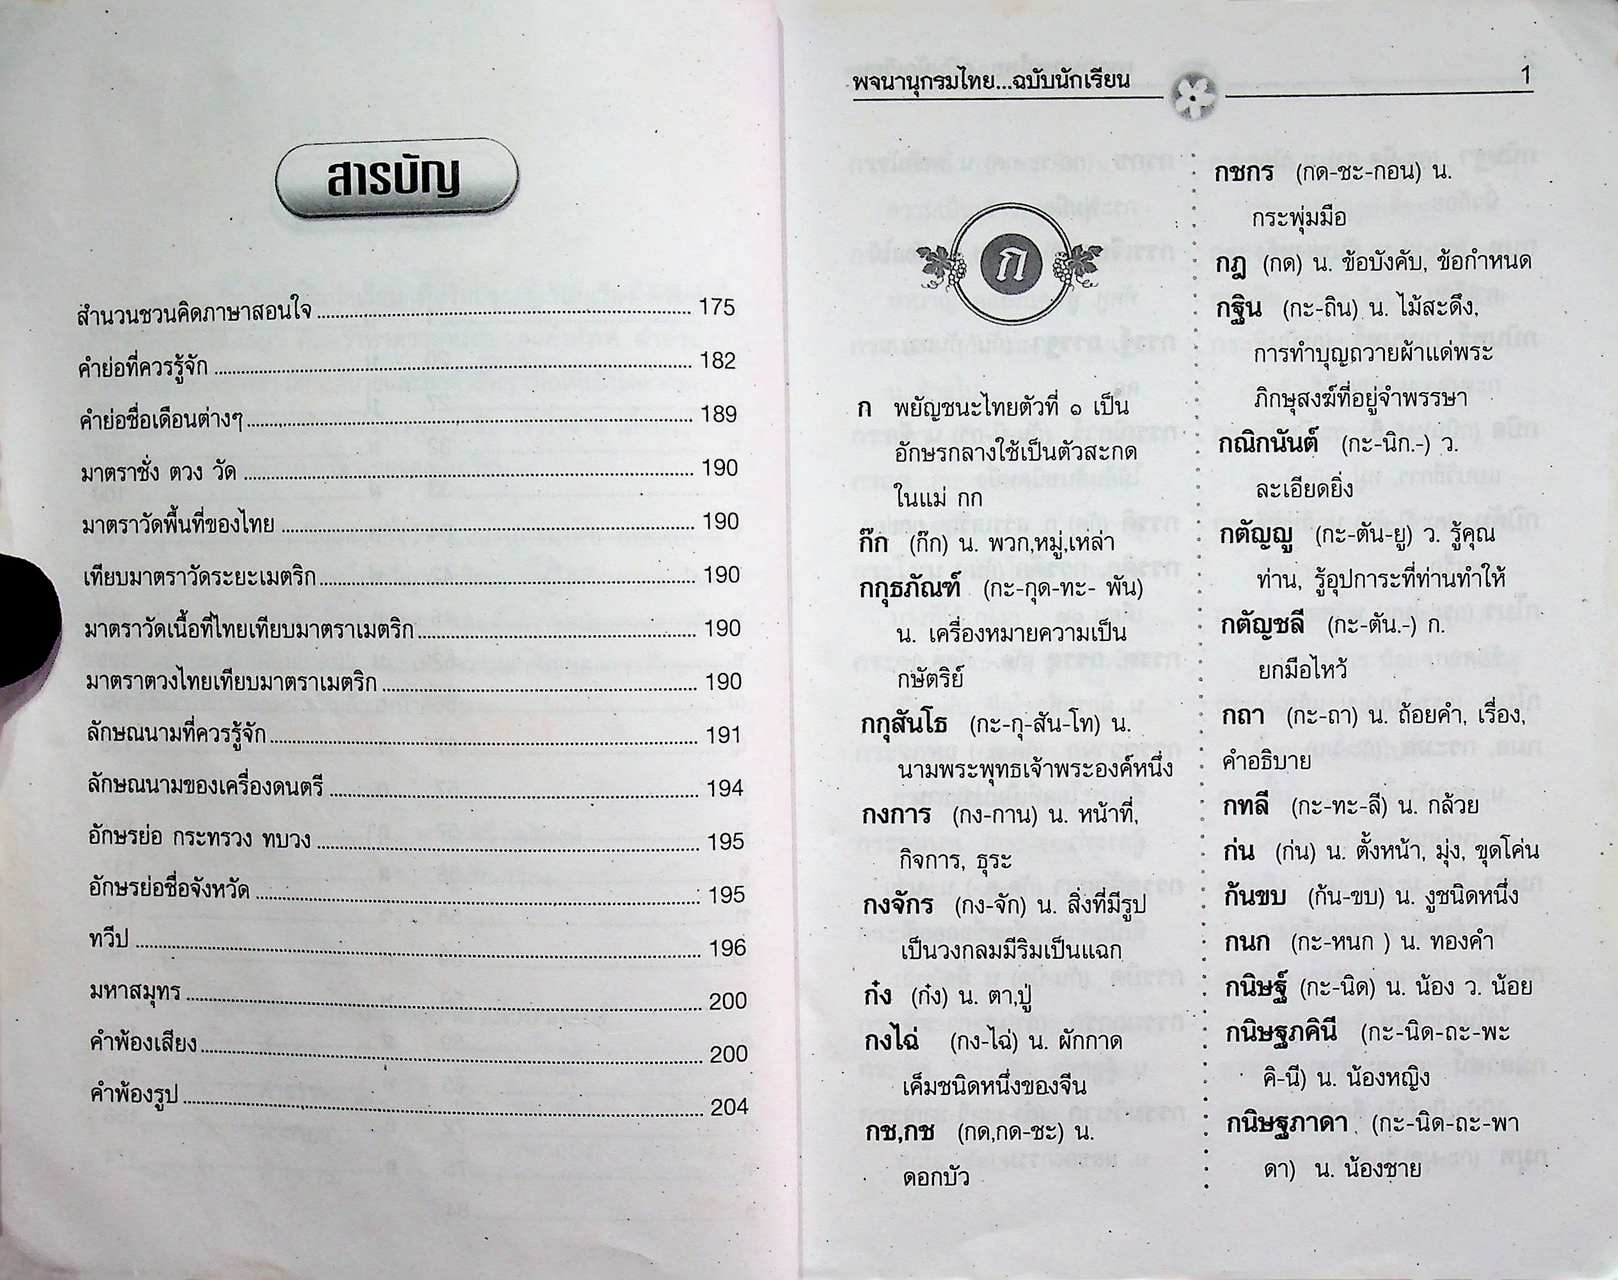 สารบัญ
สำนวนชวนคิดภาษาสอนใจ 175
คำย่อที่ควรรู้จัก 182
คำย่อชื่อเดือนต่างๆ 189
มาตราชั่ง ตวง วัด 190
มาตราวัดพื้นที่ของไทย 190
เทียบมาตราวัดระยะเมตริก 190
มาตราวัดเนื้อที่ไทยเทียบมาตราเมตริก 190
มาตราตวงไทยเทียบมาตราเมตริก 190
ลักษณนามที่ควรรู้จัก 191
ลักษณนามของเครื่องดนตรี 194
อักษรย่อ กระทรวง ทบวง 195
อักษรย่อชื่อจังหวัด 195
ทวีป 196
มหาสมุทร 200
คำพ้องเสียง 200
คำพ้องรูป 204
พจนานุกรมไทย...ฉบับนักเรียน 1
ก
ก พยัญชนะไทยตัวที่ ๑ เป็น
อักษรกลางใช้เป็นตัวสะกด
ในแม่ กก
ก๊ก (ก๊ก) น. พวก,หมู่,เหล่า
กกุธภัณฑ์ (กะ-กุด-ทะ- พัน)
น. เครื่องหมายความเป็น
กษัตริย์
กกุสันโธ (กะ-กุ-สัน-โท) น.
นามพระพุทธเจ้าพระองค์หนึ่ง
กงการ (กง-กาน) น. หน้าที่,
กิจการ, ธุระ
กงจักร (กง-จัก) น. สิ่งที่มีรูป
เป็นวงกลมมีริมเป็นแฉก
ก๋ง (ก๋ง) น. ตา,ปู่
กงไฉ่ (กง-ไฉ่) น. ผักกาด
เค็มชนิดหนึ่งของจีน
กช,กช (กด,กด-ชะ) น.
ดอกบัว
กชกร (กด-ชะ-กอน) น.
กระพุ่มมือ
กฎ (กด) น. ข้อบังคับ, ข้อกำหนด
กฐิน (กะ-ถิน) น. ไม้สะดึง,
การทำบุญถวายผ้าแด่พระ
ภิกษุสงฆ์ที่อยู่จำพรรษา
กณิกนันต์ (กะ-นิก.-) ว.
ละเอียดยิ่ง
กตัญญู (กะ-ตัน-ยู) ว. รู้คุณ
ท่าน, รู้อุปการะที่ท่านทำให้
กตัญชลี (กะ-ตัน.-) ก.
ยกมือไหว้
กถา (กะ-ถา) น. ถ้อยคำ, เรื่อง,
คำอธิบาย
กทลี (กะ-ทะ-ลี) น. กล้วย
ก่น (ก่น) น. ตั้งหน้า, มุ่ง, ขุดโค่น
ก้นขบ (ก้น-ขบ) น. งูชนิดหนึ่ง
กนก (กะ-หนก ) น. ทองคำ
กนิษฐ์ (กะ-นิด) น. น้อง ว. น้อย
กนิษฐภคินี (กะ-นิด-ถะ-พะ
คิ-นี) น. น้องหญิง
กนิษฐภาดา (กะ-นิด-ถะ-พา
ดา) น. น้องชาย